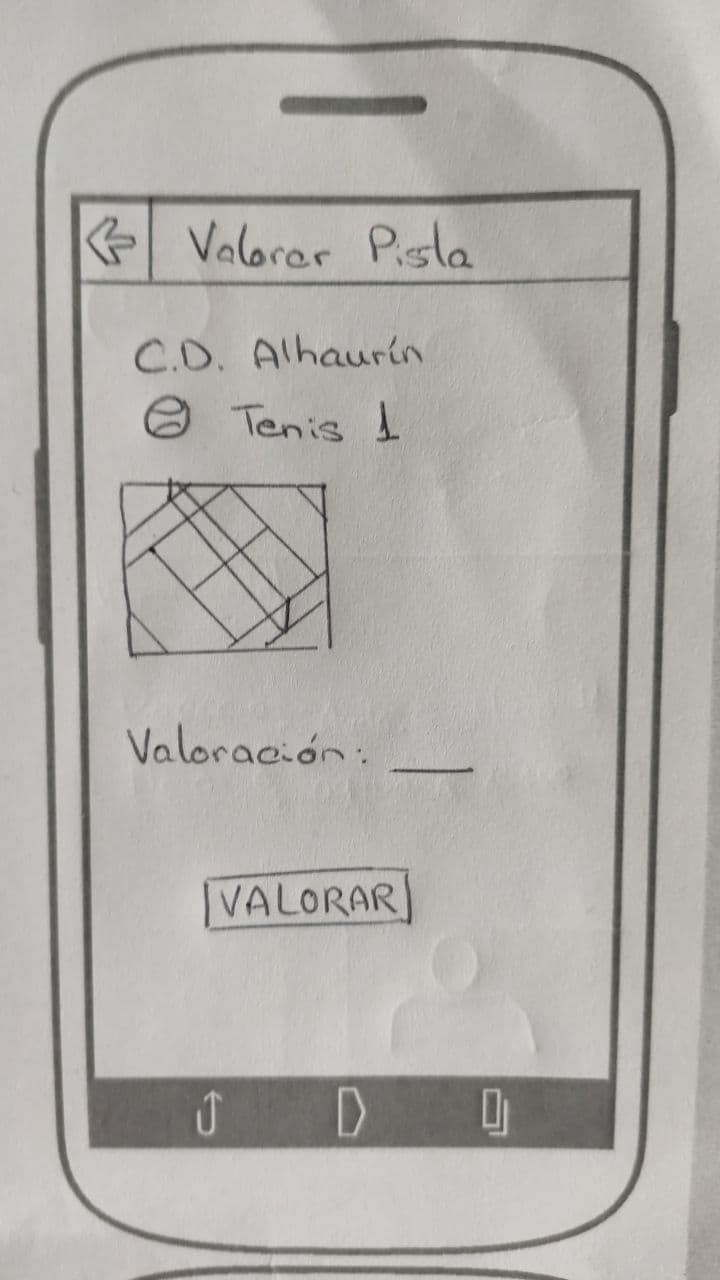 Valorar Pista
C.D. Alhaurín
Tenis 1
Valoración: ___
VALORAR